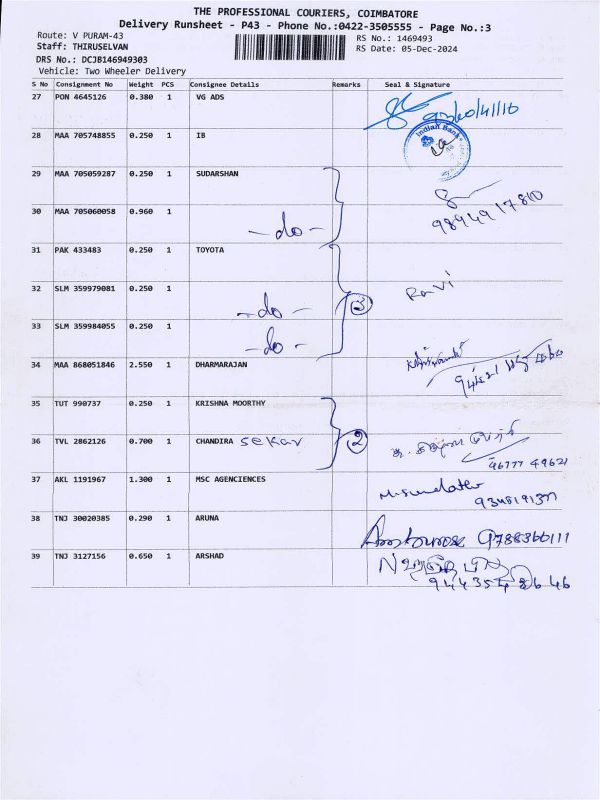 THE PROFESSIONAL COURIERS, COIMBATORE
Delivery Runsheet - P43 - Phone No.:0422-3505555 - Page No.:3
Route: V PURAM-43
RS No.: 1469493
Staff: THIRUSELVAN
RS Date: 05-Dec-2024
DRS No.: DCJB146949303
Vehicle: Two Wheeler Delivery
S No Consignment No Weight PCS Consignee Details Remarks Seal & Signature
27 PON 4645126 0.380 1 VG ADS
28 MAA 705748855 0.250 1 IB Indian Bank
29 MAA 705059287 0.250 1 SUDARSHAN
30 MAA 705060058 0.960 1 -do- 9894917810
31 PAK 433483 0.250 1 TOYOTA
32 SLM 359979081 0.250 1 -do- 3 Ravi
33 SLM 359984055 0.250 1 -do-
34 MAA 868051846 2.550 1 DHARMARAJAN
35 TUT 990737 0.250 1 KRISHNA MOORTHY
36 TVL 2862126 0.700 1 CHANDIRA sekar 2
96777 49621
37 AKL 1191967 1.300 1 MSC AGENCIENCES
38 TNJ 30020385 0.290 1 ARUNA 9788366111
39 TNJ 3127156 0.650 1 ARSHAD